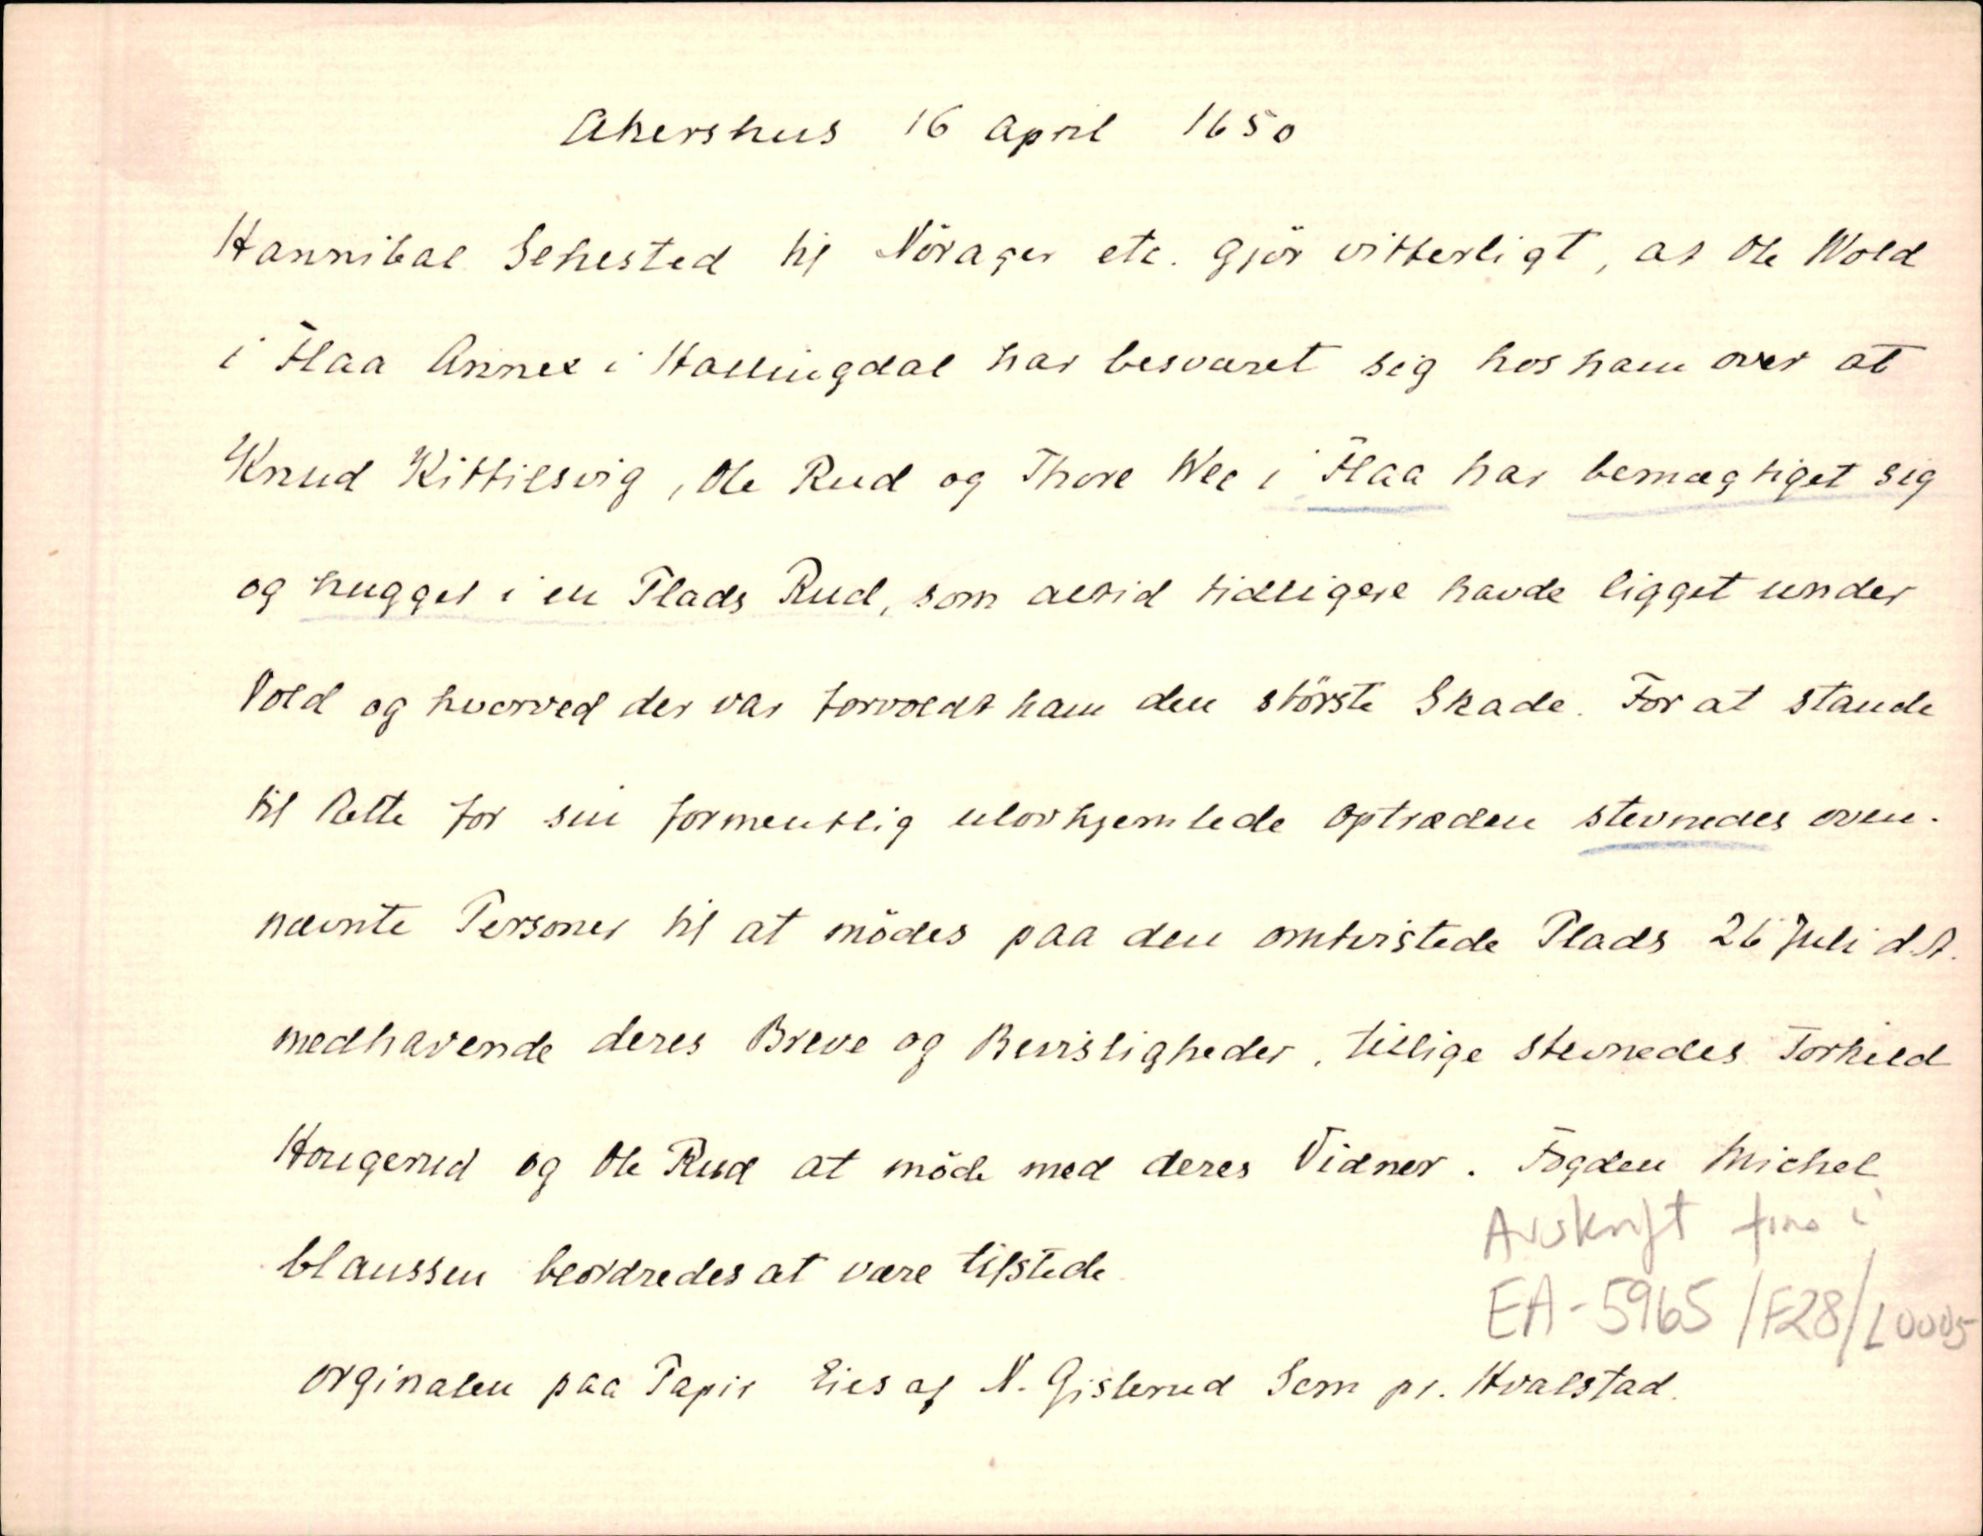 Akershus 16 April 1650
Hannibal Sehested til Nörager etc. gjör vitterligt, at Ole Wold
i Flaa Annex i Hallingdal har besværet sig hos ham over at
Knud Kittilsvig, Ole Rud og Thore Wee i Flaa har bemægtiget sig
og hugget i en Plads Rud, som altid tidligere havde ligget under
Vold og hvorved der var forvoldt ham den störste Skade. For at stande
til Rette for sin formentlig ulovhjemlede Optræden stevnedes oven-
nævnte Personer til at mödes paa den omtvistede Plads 26 Juli d.A.
medhavende deres Breve og Bevisligheder, tillige stevnedes Torkild
Hougerud og Ole Rud at möde med deres Vidner. Fogden Michel
Claussen beordredes at være tilstede
Orginalen paa Papir Eies af N. Gislerud Sem pr. Hvalstad.
Avskrift fins i
EA-5965/F28/L0005